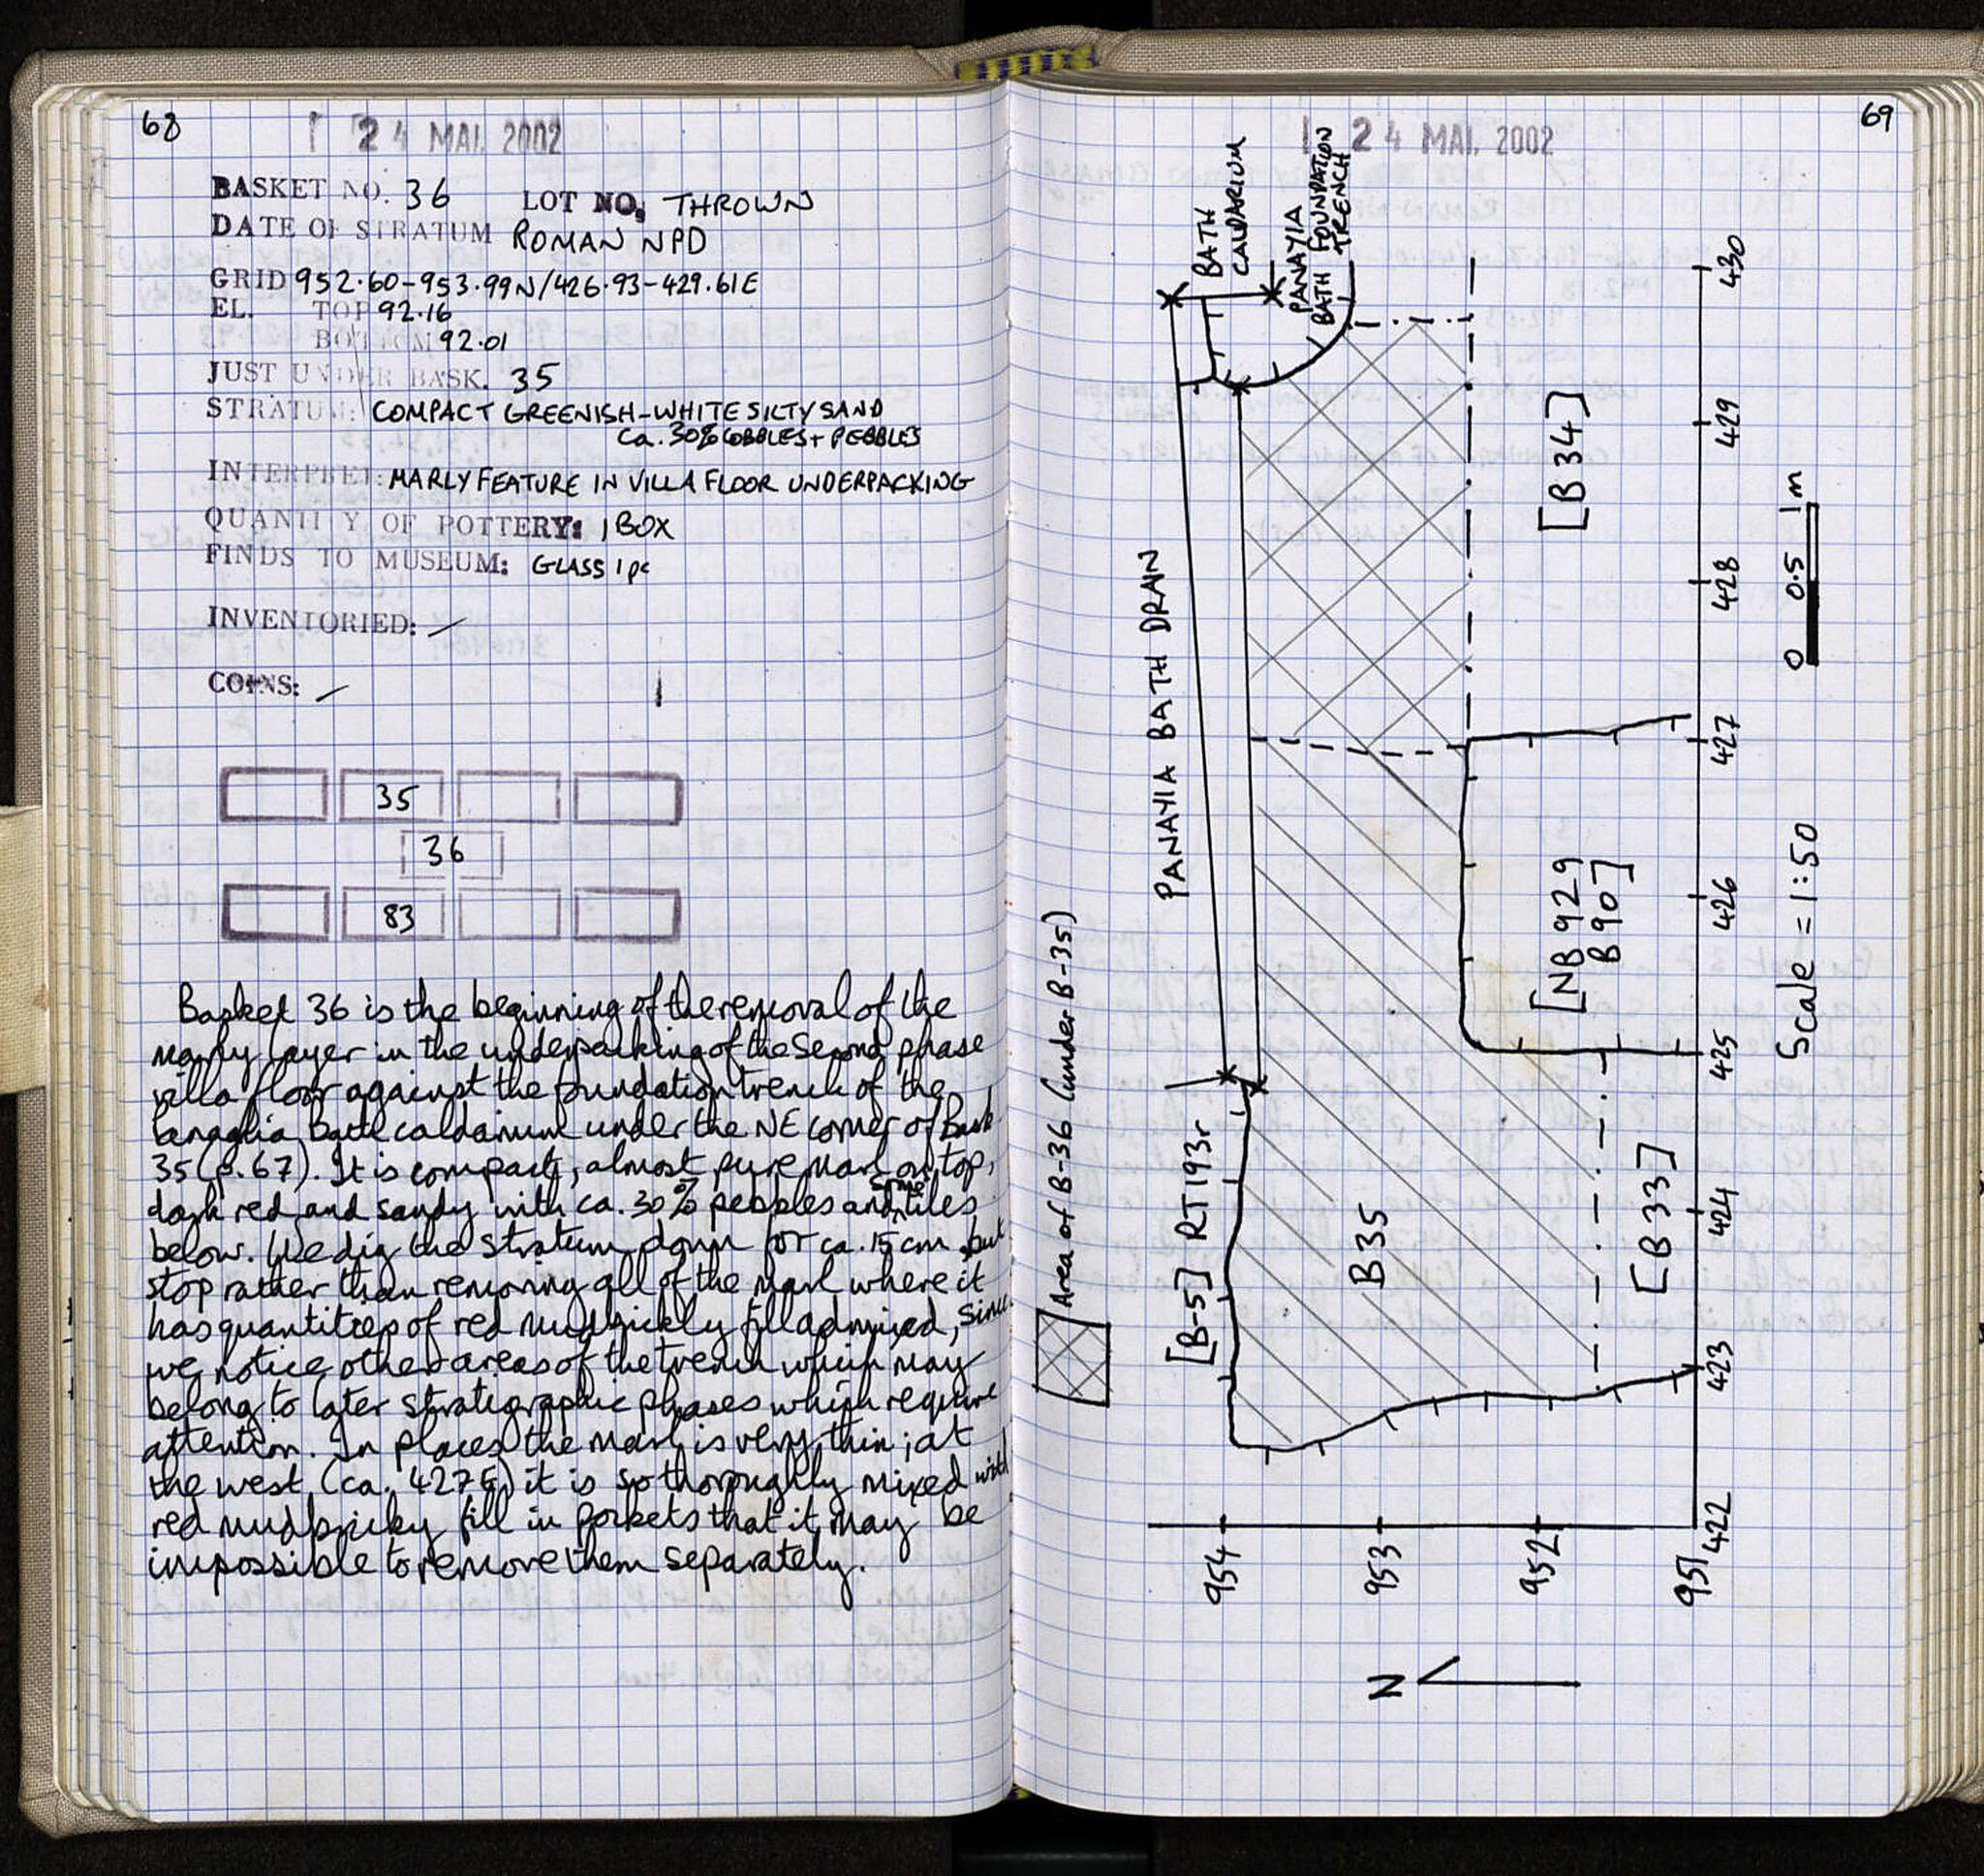 68
24 MAI. 2002
BASKET NO. 36 LOT NO. THROWN
DATE OF STRATUM ROMAN NPD
GRID 952.60-953.99N/426.93-429.61E
EL. TOP 92.16
BOTTOM 92.01
JUST UNDER BASK. 35
STRATUM: COMPACT GREENISH-WHITE SILTY SAND
ca. 30% COBBLES + PEBBLES
INTERPRET: MARLY FEATURE IN VILLA FLOOR UNDERPACKING
QUANTITY OF POTTERY: 1 BOX
FINDS TO MUSEUM: GLASS 1 pc
INVENTORIED: /
COINS: /
35
36
83
Basket 36 is the beginning of the removal of the
marly layer in the underpacking of the Second phase
villa floor against the foundation trench of the
Panaghia Bath caldarium under the NE corner of Bask
35 (p. 67). It is compact, almost pure marl on top,
dark red and sandy with ca. 30% pebbles and some tiles
below. We dig the stratum down for ca. 15 cm, but
stop rather than removing all of the marl where it
has quantities of red mudbrickly fill admixed, since
we notice other areas of the trench which may
belong to later stratigraphic phases which require
attention. In places the marl is very thin; at
the west (ca. 427E) it is so thoroughly mixed with
red mudbricky fill in pockets that it may be
impossible to remove them separately.
69
24 MAI. 2002
Area of B-36 (under B-35)
PANAYIA BATH DRAIN
BATH
CALDARIUM
PANAYIA
BATH FOUNDATION
TRENCH
[B-5] RT193r
B35
[B34]
[NB 929
B90]
[B33]
430
429
428
427
426
425
424
423
422
954
953
952
951
0 0.5 1m
Scale = 1:50
N